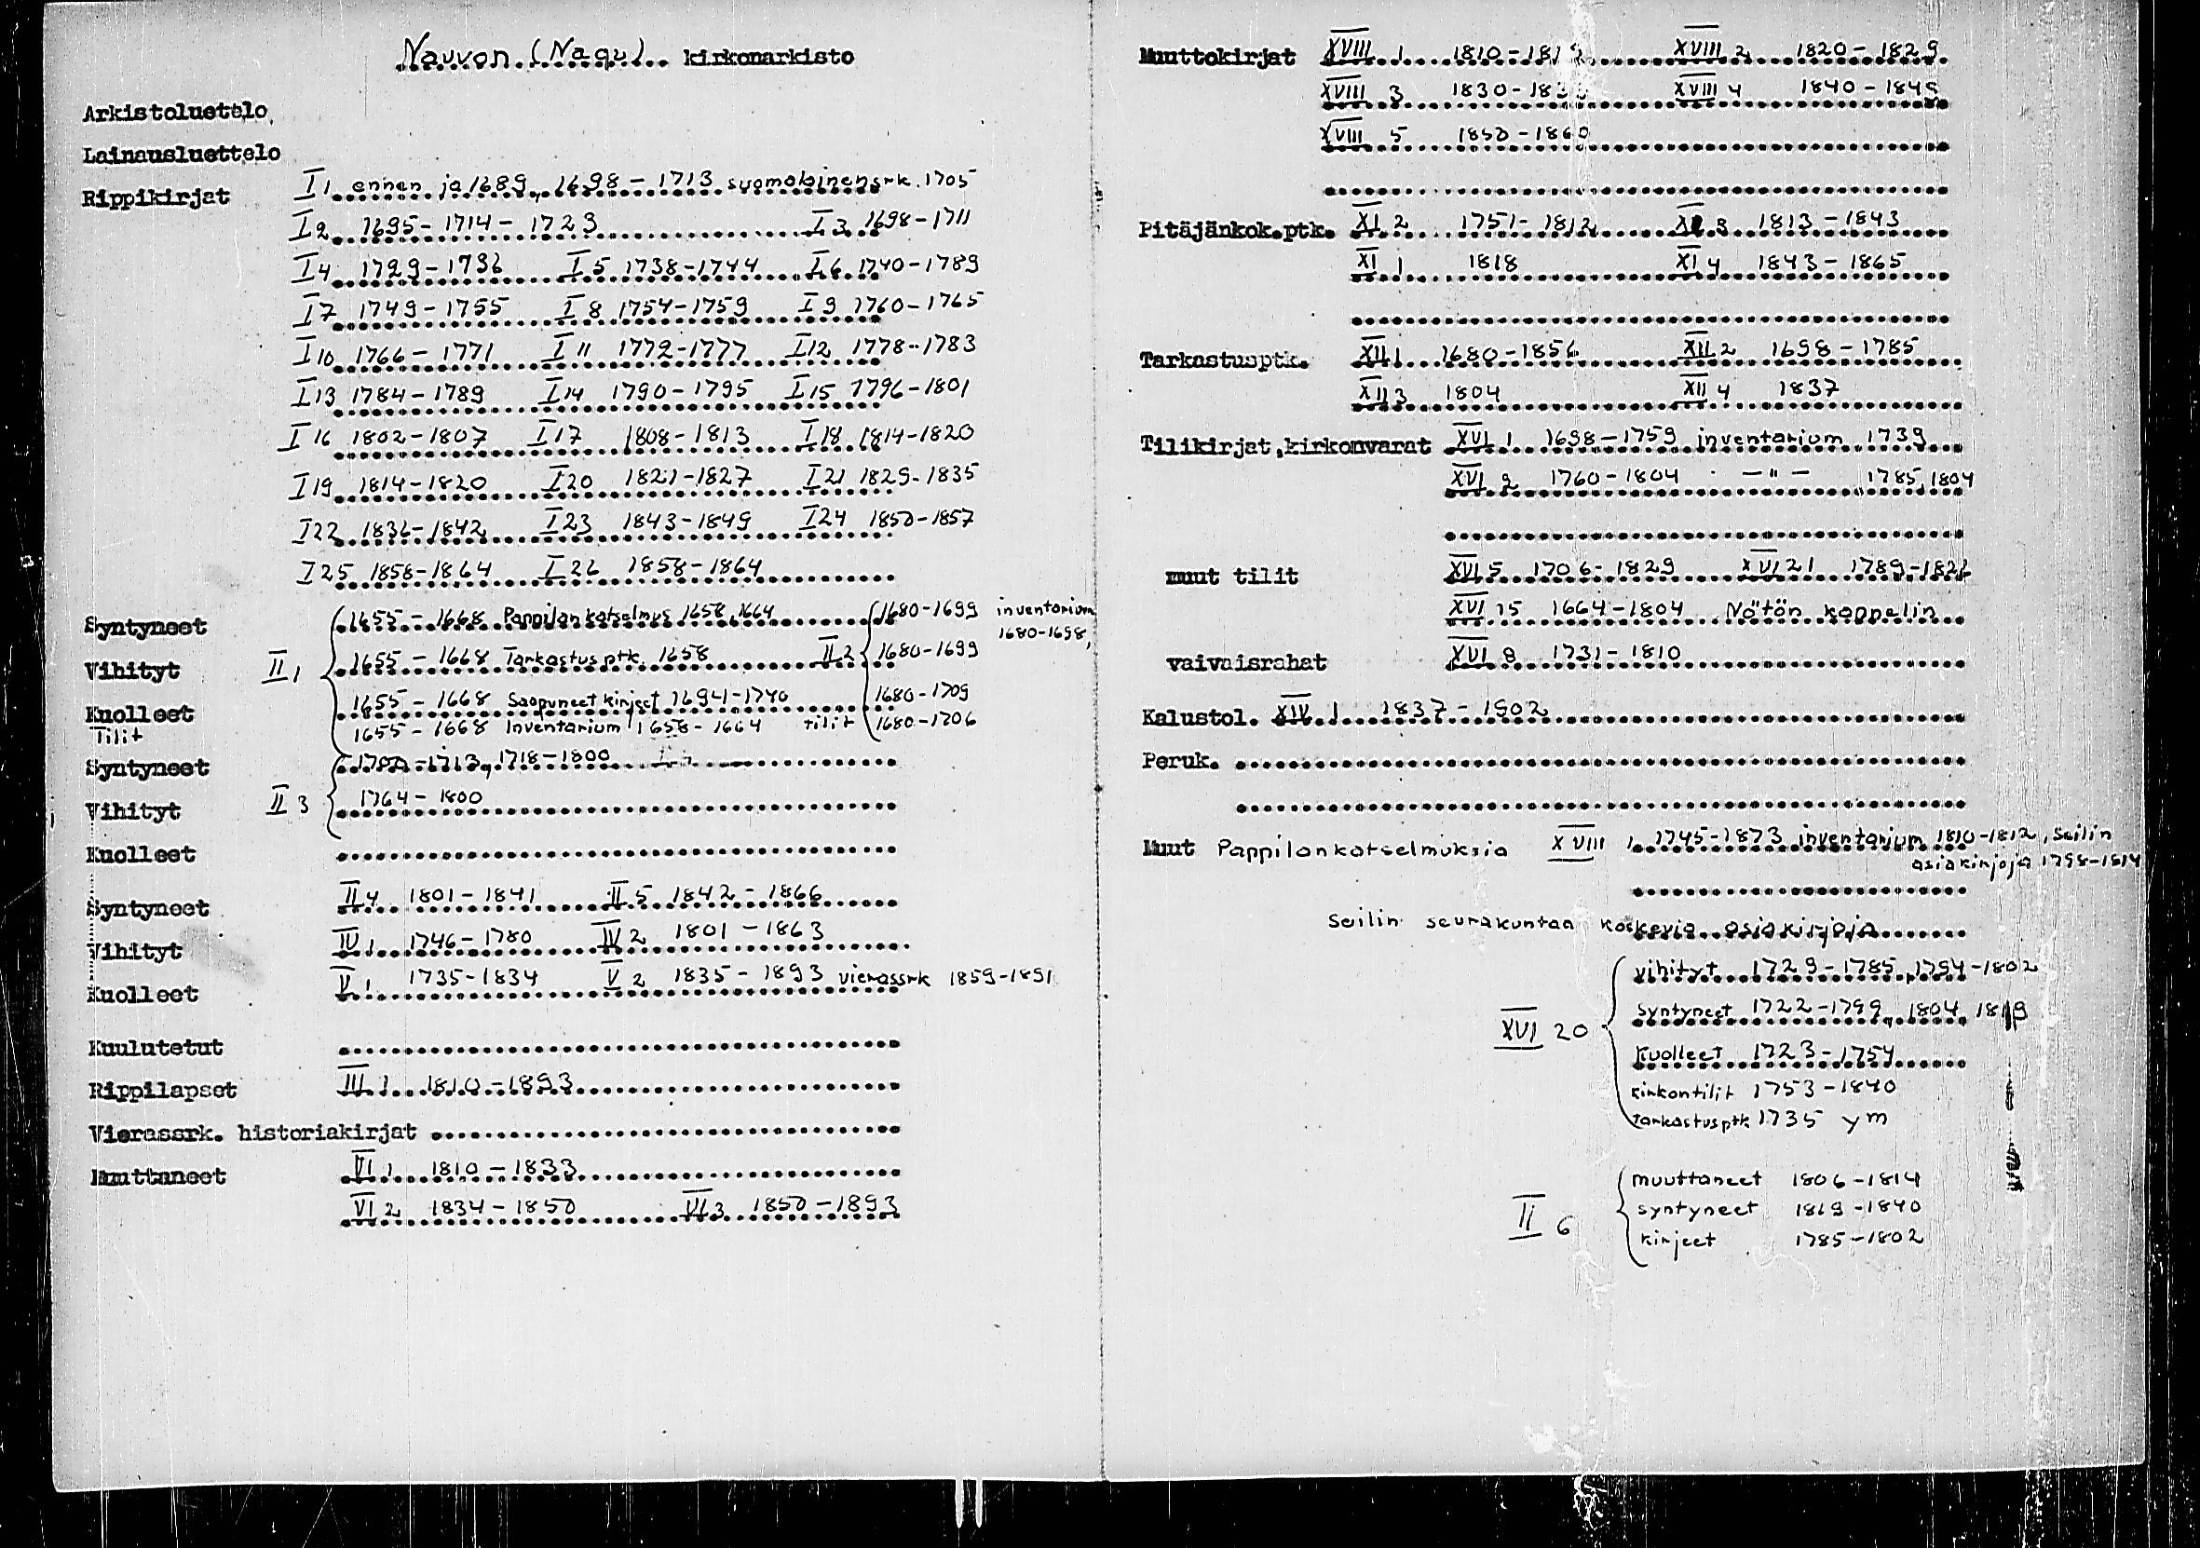 Nauvon (Nagu) kirkonarkisto
Arkistoluettelo
Lainausluettelo
Rippikirjat I 1 ennen ja 1689, 1698 - 1713 suomalainen srk. 1705
I 2 1695 - 1714 - 1723 I 3 1698 - 1711
I 4 1729 - 1736 I 5 1738 - 1744 I 6 1740 - 1789
I 7 1749 - 1755 I 8 1754 - 1759 I 9 1760 - 1765
I 10 1766 - 1771 I 11 1772 - 1777 I 12 1778 - 1783
I 13 1784 - 1789 I 14 1790 - 1795 I 15 1796 - 1801
I 16 1802 - 1807 I 17 1808 - 1813 I 18 1814 - 1820
I 19 1814 - 1820 I 20 1821 - 1827 I 21 1829 - 1835
I 22 1836 - 1842 I 23 1843 - 1849 I 24 1850 - 1857
I 25 1858 - 1864 I 26 1858 - 1864
Syntyneet 1655 - 1668 Pappilan katselmus 1658, 1664 1680 - 1699 inventarium
1680 - 1698,
Vihityt II 1 1655 - 1668 Tarkastusptk. 1658 II 2 1680 - 1699
Kuolleet 1655 - 1668 Saapuneet kirjeet 1694 - 1740 1680 - 1709
Tilit 1655 - 1668 Inventarium 1658 - 1664 tilit 1680 - 1706
Syntyneet - 1713, 1718 - 1800
Vihityt II 3 1764 - 1800
Kuolleet
Syntyneet II 4 1801 - 1841 II 5 1842 - 1866
Vihityt IV 1 1746 - 1780 IV 2 1801 - 1863
Kuolleet V 1 1735 - 1834 V 2 1835 - 1893 vierassrk 1859 - 1891
Kuulutetut
Rippilapset III 1 1810 - 1893
Vierassrk. historiakirjat
Muuttaneet VI 1 1810 - 1833
VI 2 1834 - 1850 VI 3 1850 - 1893
Muuttokirjat XVIII 1 1810 - 1819 XVIII 2 1820 - 1829
XVIII 3 1830 - 1839 XVIII 4 1840 - 1849
XVIII 5 1850 - 1860
Pitäjänkok.ptk. XI 2 1751 - 1812 XI 3 1813 - 1843
XI 1 1818 XI 4 1843 - 1865
Tarkastusptk. XII 1 1680 - 1856 XII 2 1698 - 1785
XII 3 1804 XII 4 1837
Tilikirjat, kirkonvarat XVI 1 1698 - 1759 inventarium 1739
XVI 2 1760 - 1804 - " - 1785, 1804
muut tilit XVI 5 1706 - 1829 XVI 21 1789 - 1826
XVI 15 1664 - 1804 Nötön kappelin
vaivaisrahat XVI 8 1731 - 1810
Kalustol. XIV 1 1837 - 1902
Peruk.
Muut Pappilankatselmuksia XVIII 1 1745 - 1873 inventarium 1810 - 1812, Seilin
asiakirjoja 1798 - 1814
Seilin seurakuntaa koskevia asiakirjoja
vihityt 1729 - 1785, 1794 - 1802
syntyneet 1722 - 1799, 1804, 1819
XVI 20
kuolleet 1723 - 1754
kirkontilit 1753 - 1840
Tarkastusptk 1735 ym
muuttaneet 1806 - 1814
II 6 syntyneet 1819 - 1840
kirjeet 1785 - 1802